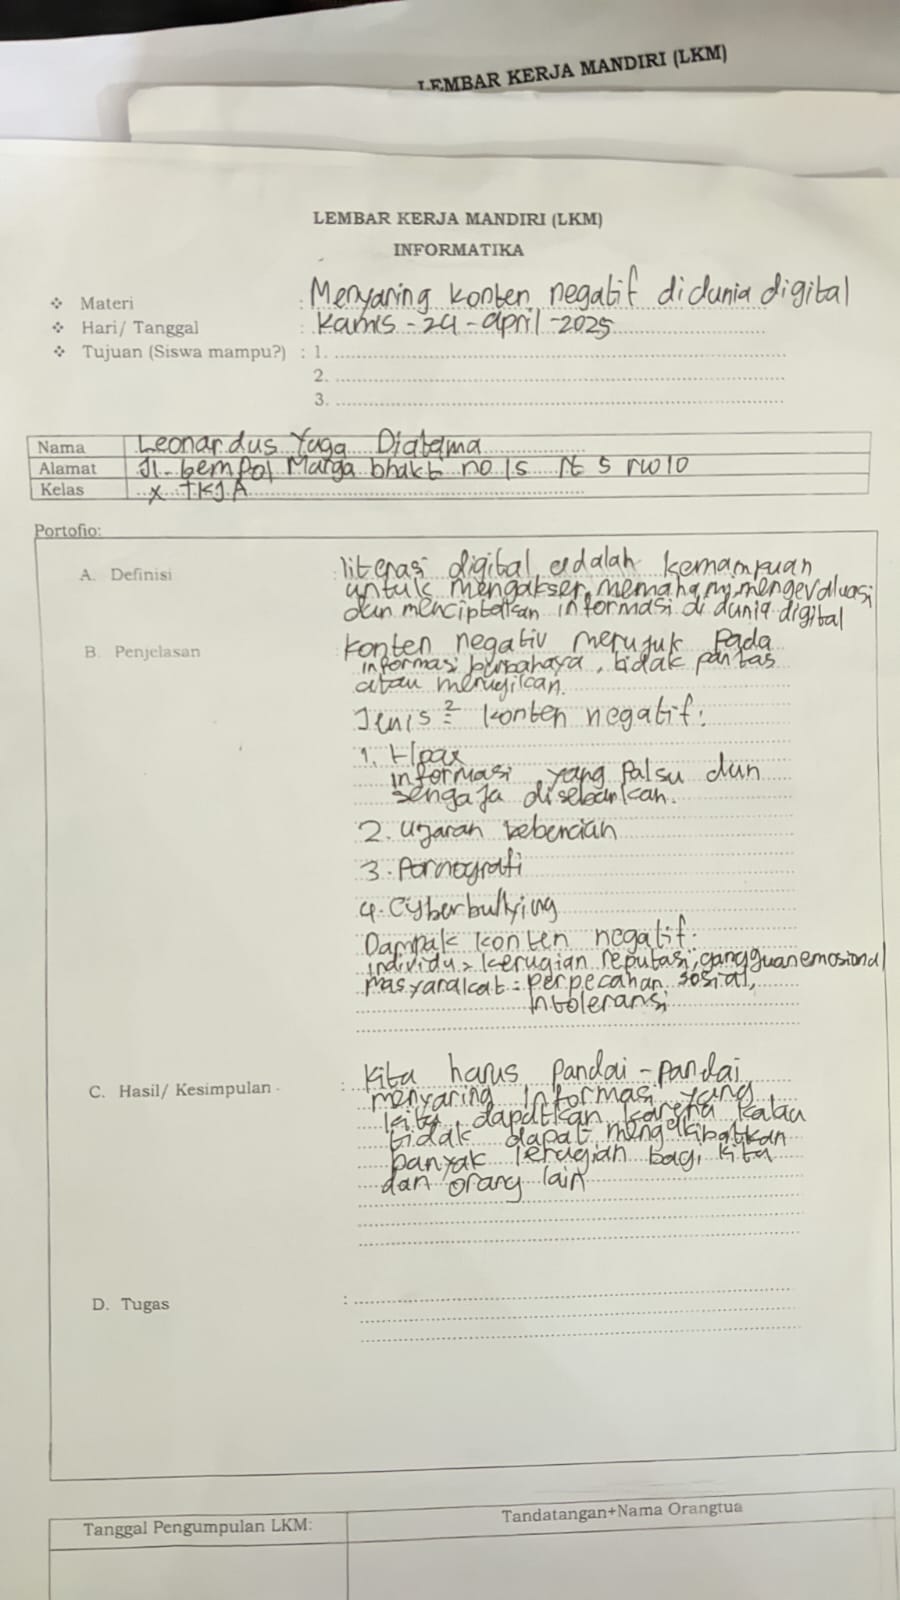 LEMBAR KERJA MANDIRI (LKM)
LEMBAR KERJA MANDIRI (LKM)
INFORMATIKA
❖ Materi : Menyaring konten negatif didunia digital
❖ Hari/ Tanggal : Kamis - 24 - april - 2025
❖ Tujuan (Siswa mampu?) : 1.
2.
3.
Nama Leonardus Yoga Diatama
Alamat Jl. bempol Marga bhakti no 15 Rt 5 rw10
Kelas X TKJ A
Portofio:
A. Definisi : literasi digital adalah kemampuan
untuk mengakses, memahami, mengevaluasi
dan menciptakan informasi di dunia digital
B. Penjelasan : konten negativ merujuk pada
informasi berbahaya, tidak pantas
atau merugikan.
Jenis² konten negatif:
1. Hoax
informasi yang palsu dan
sengaja disebarkan.
2. ujaran kebencian
3. Pornografi
4. Cyberbullying
Dampak konten negatif:
individu > kerugian reputasi, gangguan emosional
masyarakat = perpecahan sosial,
intoleransi
C. Hasil/ Kesimpulan : Kita harus pandai - pandai
menyaring informasi yang
kita dapatkan karena kalau
tidak dapat mengakibatkan
banyak kerugian bagi kita
dan orang lain
D. Tugas :
Tanggal Pengumpulan LKM: Tandatangan+Nama Orangtua